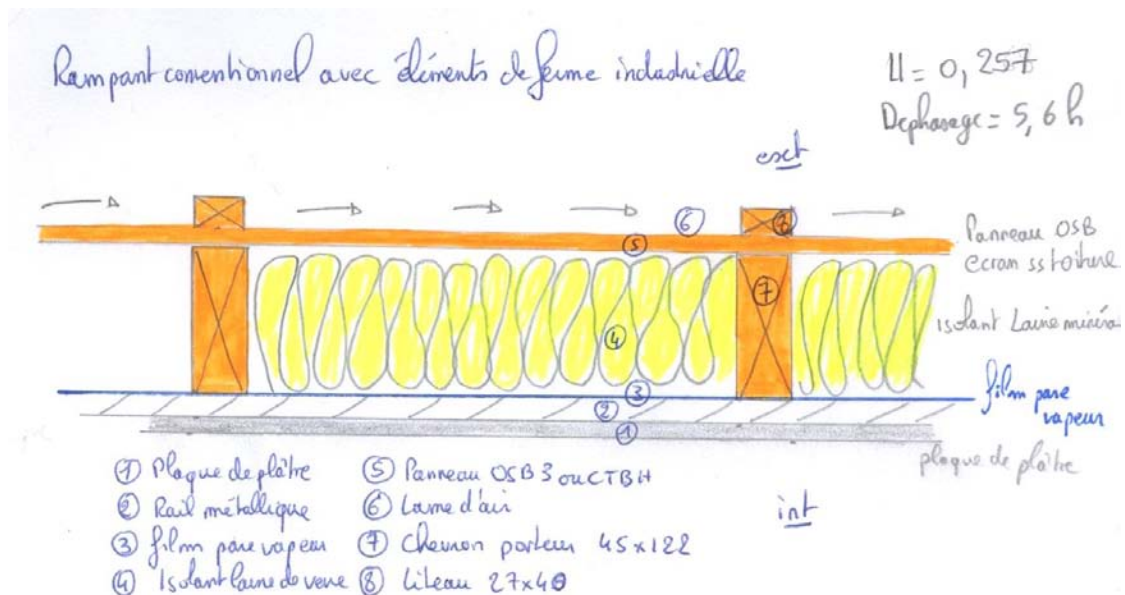 Rampant conventionnel avec éléments de ferme industrielle
U = 0,257
Dephasage = 5,6 h
ext
6
8
5
Panneau OSB
ecran ss toiture
7
Isolant Laine minéra
4
3
film pare
vapeur
2
1
plaque de plâtre
int
1 Plaque de plâtre
2 Rail métallique
3 film pare vapeur
4 Isolant laine de verre
5 Panneau OSB 3 ou CTBH
6 Lame d'air
7 Chevron porteur 45x122
8 Liteau 27x40